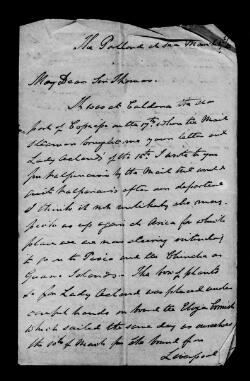 The Portland at sea March
My Dear Sir Thomas.
It was at Caldera the sea
port of Copiapo on the 17th when the Mail
steamer brought me your letter and
Lady Acland's of the 15th. I wrote to you
from Valparaiso by the Mail that would
quit Valparaiso after our departure
I think it not unlikely also
go up again at Arica for which
place we are now steering intending
to go on to Pisco and the Chincha or
Guano Islands. The box of plants
for Lady Acland was placed under
careful hands on board the Eliza Cornish
which sailed the same day as ourselves
the 10th of March for the
Liverpool